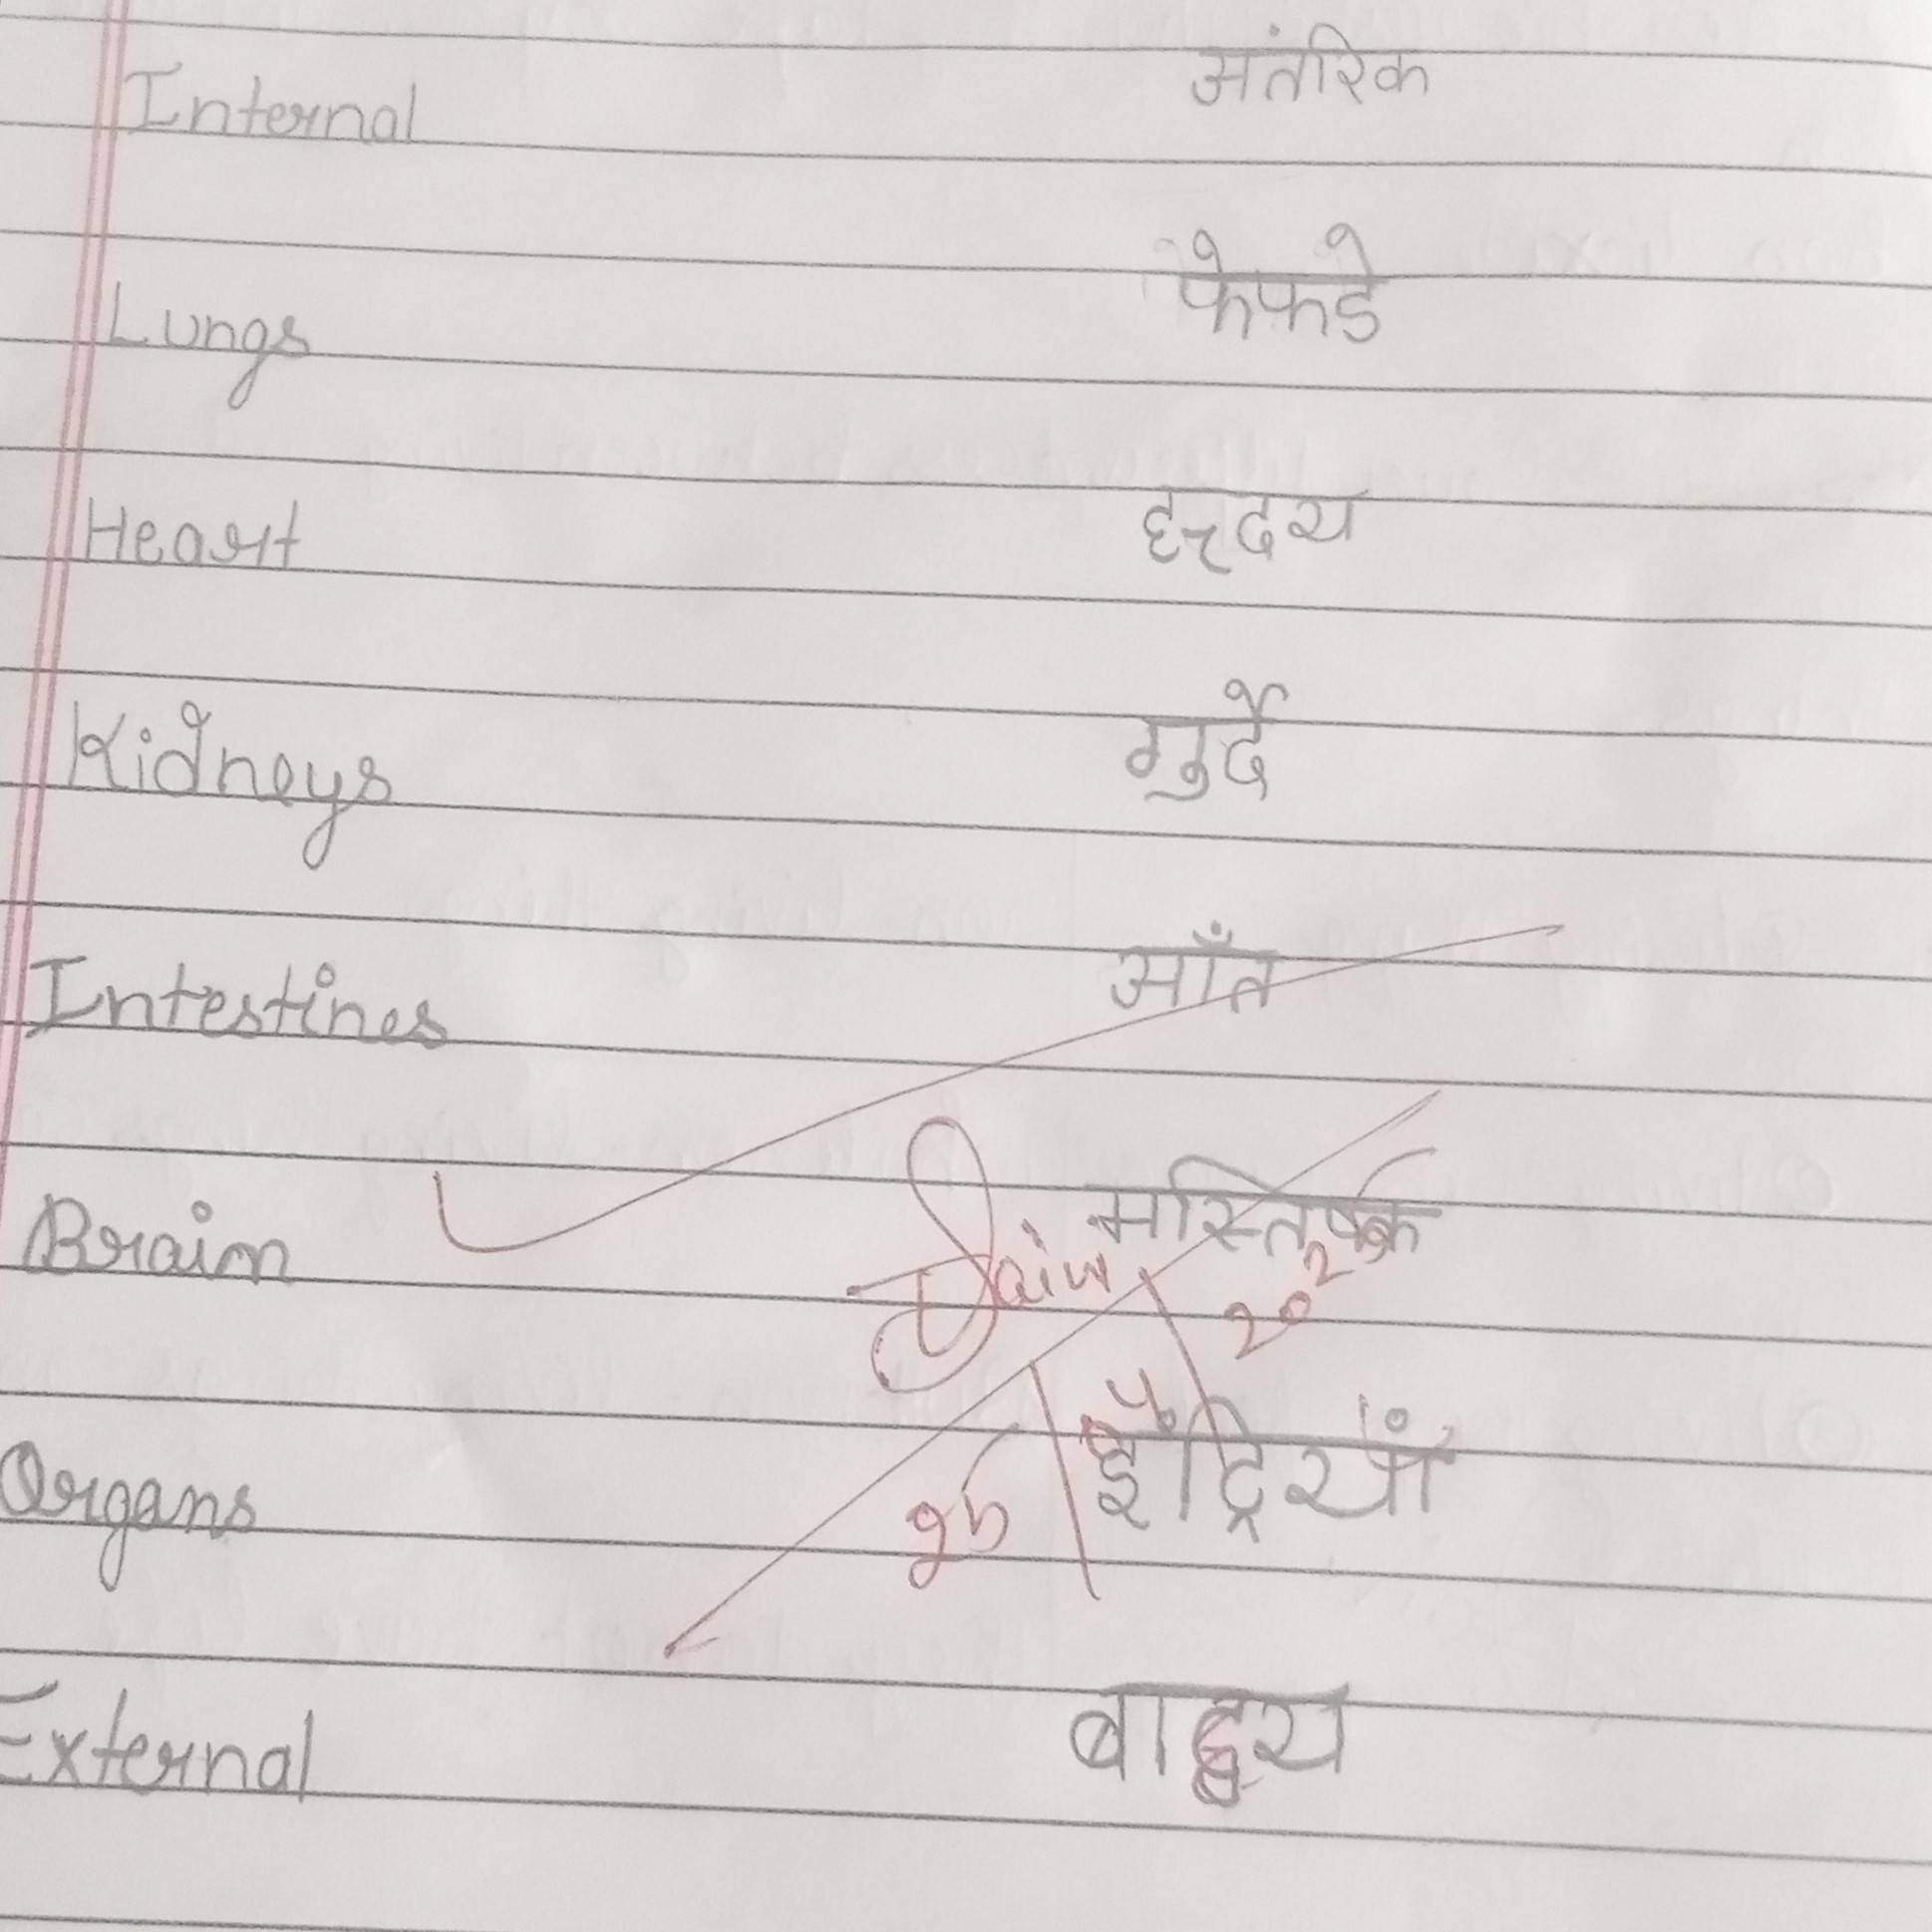 Internal अंतरिक
Lungs फेफडे
Heart हृदय
Kidneys गुर्दे
Intestines आँत
Brain मस्तिष्क
Organs इंद्रियाँ
External बाह्य